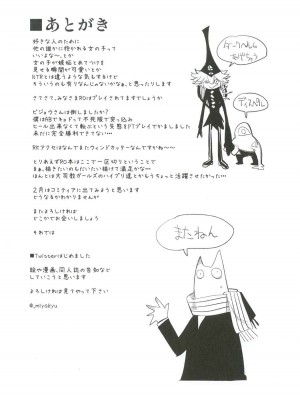 ■あとがき
好きな人のために
他の誰かに抱かれる女の子って
いいよな～、とか
女の子が媚悩とめてつける
見せる瞬間が可愛いとか
NTRとは違うような気もするけど
そういうのも有りなんじゃないかなぁ、と思ったりします
さてさて、みなさまROはプレイされてますでしょうか
ビジョウさんは倒しましたか？
僕は初でちょドって不死服で突っ込み
ヒール出来なくて転ぶという変態PTプレイでかましました
未だに完全勝利できてない…
RKアクセはなんでまたウィンドカッターなんですかね～～
とりあえずRO本はここで一区切りということで
まぁ、描きたいのもだいたい描けて満足かなー
ほんとは大司教ガールズのハイプリ達とかもうちょっと活躍させたかった…
2月はコミティアに出てみようと思います
どうなるかわかりませんが
またよろしければ
どこかでお会いしましょう
それでは
■Twitterはじめました
絵や漫画、同人誌の告知などを
していこうと思います
よろしければ見てやって下さい
@_miyakyu
あげちゃう
ディスペル
またねん